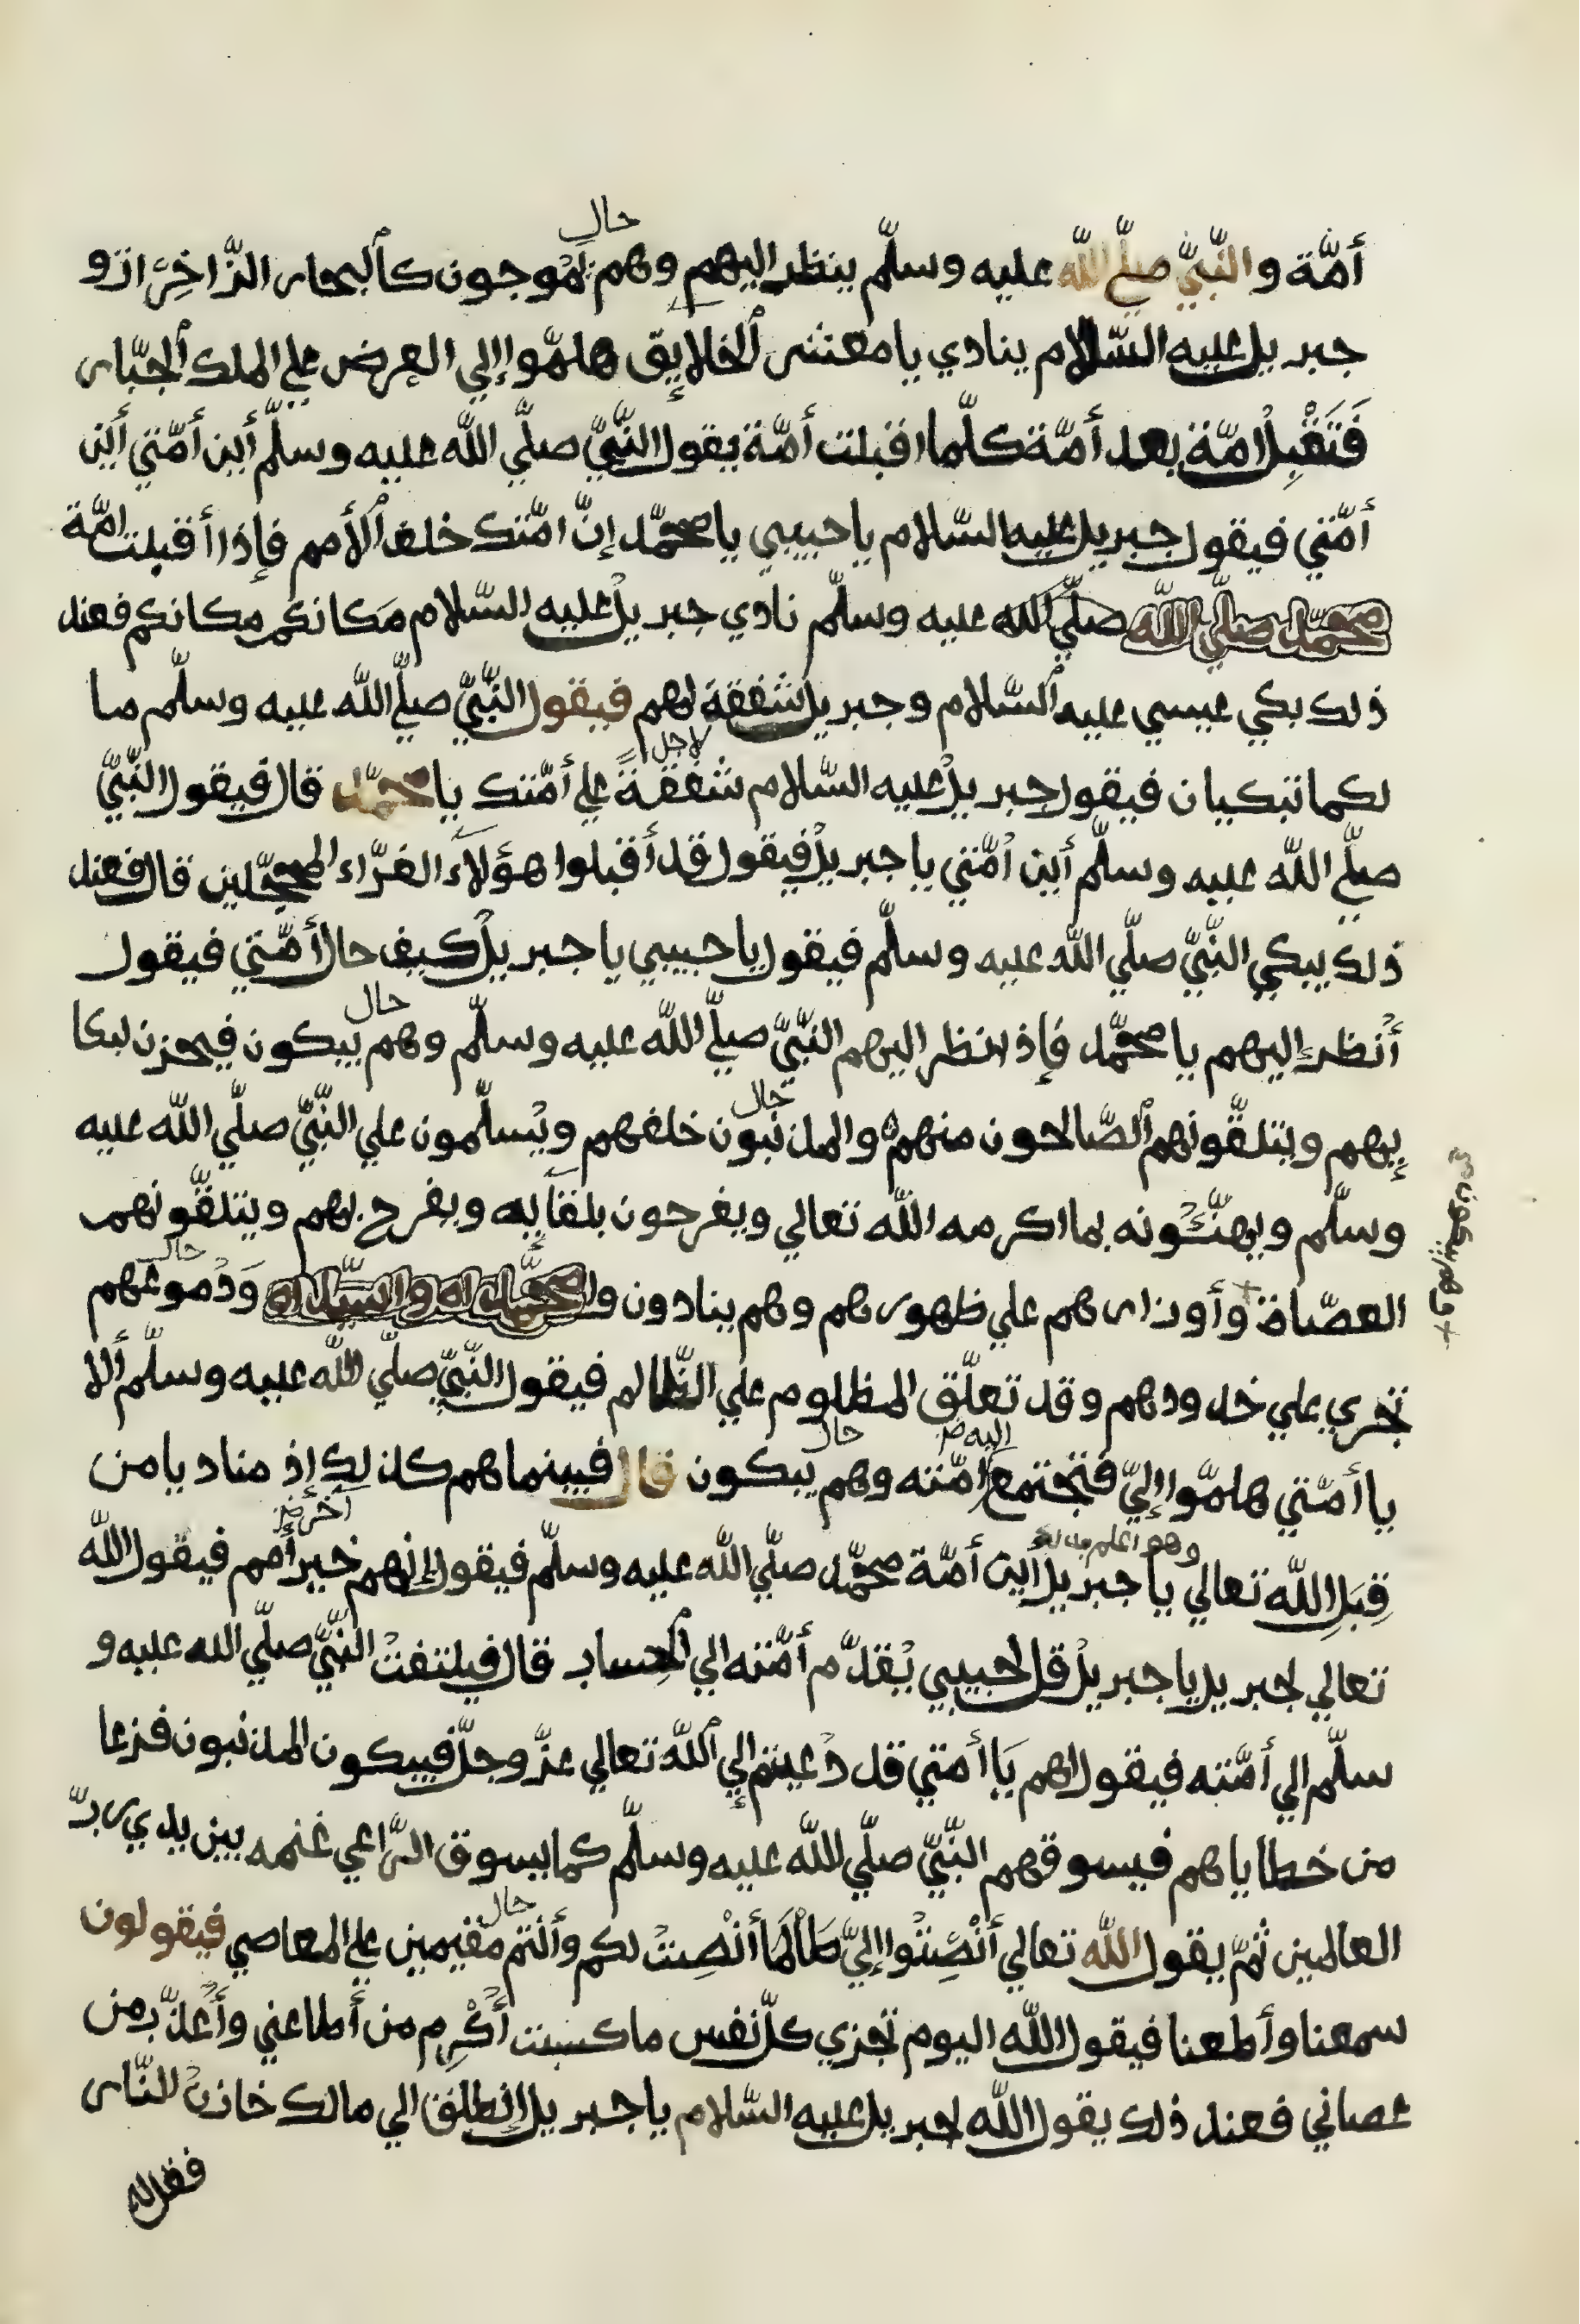 حال
أمّة والنّبيّ صلّي الله عليه وسلّم ينظر إليهم وهم يموجون كٱلبحار الزّاخرات و
جبريل عليه السّلام ينادي يا معشر ٱلخلايق هلمّوا إلي العرض علي الملك ٱلجبّار
فَتَقْبِل امّة بعد أمّة كلّما اقبلت أمّة يقول النّبيّ صلّي الله عليه وسلّم أين أمّتي أين
أمّتي فيقول جبريل عليه السّلام يا حبيبي يا محمّد إنّ امّتك خلف ٱلأمم فإذا أقبلت امّة
محمّد صلّي الله صلّي الله عليه وسلّم نادي جبريل عليه السّلام مَكانكم مكانكم فعند
ذلك بكي عيسي عليه ٱلسّلام وجبريل شفقة لهم فيقول النّبيّ صلّي الله عليه وسلّم ما
لاجل
لكما تبكيان فيقول جبريل عليه السّلام شفقةً علي أمّتك يا محمّد قال فيقول النّبيّ
صلّي الله عليه وسلّم أين أمّتي يا جبريل فيقول قد أقبلوا هؤلآء الغرّاء المحجّلين قال فعند
ذلك يبكي النّبيّ صلّي الله عليه وسلّم فيقول يا حبيبي يا جبريل كيف حال أمّتي فيقول
حال
أنظر إليهم يا محمّد فإذ انظر اليهم النّبيّ صلّي الله عليه وسلّم وهم يبكون فيحزن لبكا
حال
ٕيهم ويتلقّونهم ٱلصّالحون منهم والمذنبون خلفهم ويُسلّمون علي النّبيّ صلّي الله عليه
وسلّم ويهنّئونه بما اكرمه الله تعالي ويفرحون بلقآيه ويفرح بهم ويتلقّونهم
+ وهم يبكون صح
حال
العصّاة وأوزارهم علي ظهورهم وهم ينادون وا محمّداه وا سيّداه وَدُموعهم
تجري علي خدودهم وقد تعلّق المظلوم علي الظّالم فيقول النّبيّ صلّي الله عليه وسلّم ألا
اليه حال
يا أمّتي هلمّوا إليّ فتجتمع امّته وهم يبكون قال فبينما هم كذلك إذ مناد يا من
وهو اعلم به أخر
قِبَلِ الله تعالي يا جبريل أين أمّة محمّد صلّي الله عليه وسلّم فيقول إنّهم خير أمم فيقول الله
تعالي لجبريل يا جبريل قل لحبيبي يُقدّم أمّته إلي ٱلحساب قال فيلتفت النّبيّ صلّي الله عليه و
سلّم الي أمّته فيقول لهم يَا أمتي قد دُعيتم إلي ٱلله تعالي عزّ وجلّ فيبكون المذنبون فزعا
من خطاياهم فيسوقهم النّبيّ صلّي الله عليه وسلّم كما يسوق الرّاعي غنمه بين يدي ربّ
حال
العالمين ثمّ يقول الله تعالي أَنْصِتُوا إليّ طَالَمَا أَنْصِتُ لكم وأنتم مقيمين علي المعاصي فيقولون
سمعنا وأطعنا فيقول الله اليوم تجزي كلّ نفس ما كسبت أُكْرِم من أطاعني وأُعذّب من
عصاني فعند ذلك يقول الله لجبريل عليه السّلام يا جبريل إنطلق الي مالك خازن النّار
فقل له